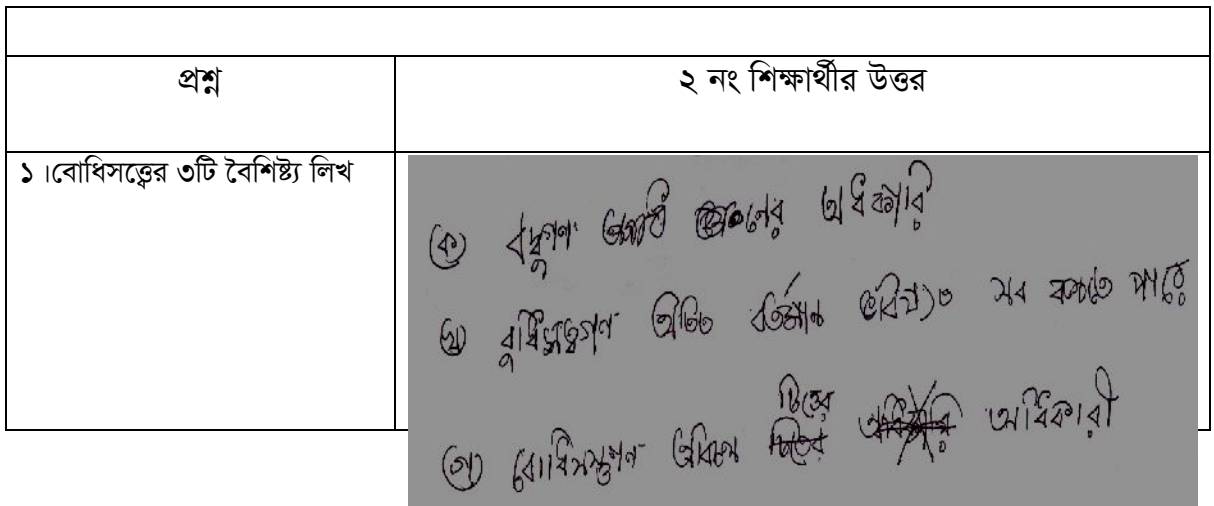 প্রশ্ন
২ নং শিক্ষার্থীর উত্তর
১।বোধিসত্ত্বের ৩টি বৈশিষ্ট্য লিখ
(ক) বদ্ধুগণ জ্ঞানের অধিকারি
(খ) বুধিসত্বগণ অতিত বর্তমান ভবিষ্যত সব বলতে পারে
(গ) বোধিসত্ত্বগণ অবিচল চিত্তের অধিকারী